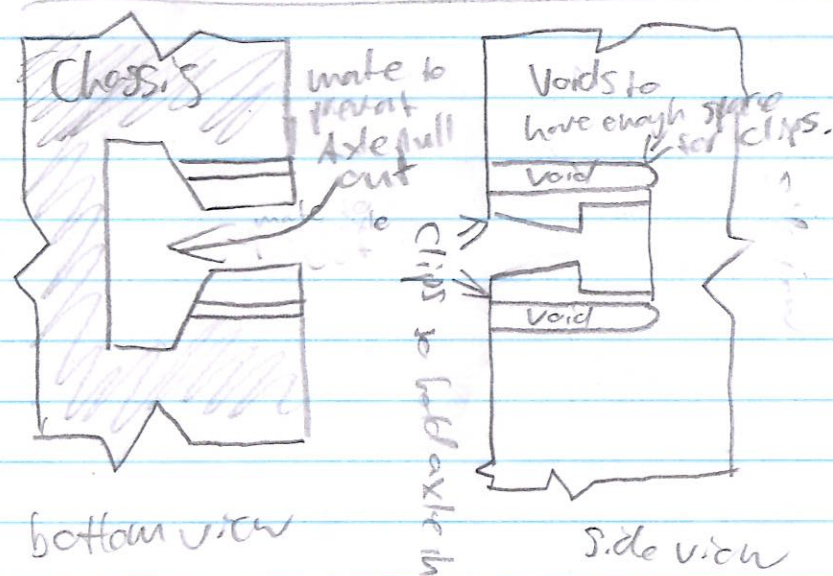 Chassis
mate to
prevent
Axle pull
out
Voids to
have enough space
for clips.
void
void
Clips to hold axle in
bottom view
Side view